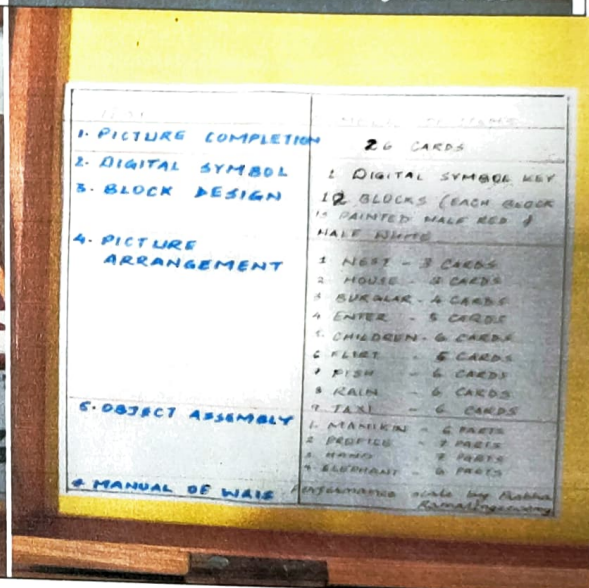 TEST
1. PICTURE COMPLETION 26 CARDS
2. DIGITAL SYMBOL 1 DIGITAL SYMBOL KEY
3. BLOCK DESIGN 12 BLOCKS (EACH BLOCK
IS PAINTED HALF RED &
HALF WHITE
4. PICTURE
ARRANGEMENT
1 NEST - 3 CARDS
2 HOUSE - 3 CARDS
3 BURGLAR - 4 CARDS
4 ENTER - 5 CARDS
5. CHILDREN - 6 CARDS
6 FLIRT - 5 CARDS
7 FISH - 6 CARDS
8 RAIN - 6 CARDS
9 TAXI - 6 CARDS
5. OBJECT ASSEMBLY
1. MANIKIN - 6 PARTS
2 PROFILE - 7 PARTS
3 HAND 7 PARTS
4 ELEPHANT - 6 PARTS
* MANUAL OF WAIS Performance scale by Prabha
Ramalingaswamy